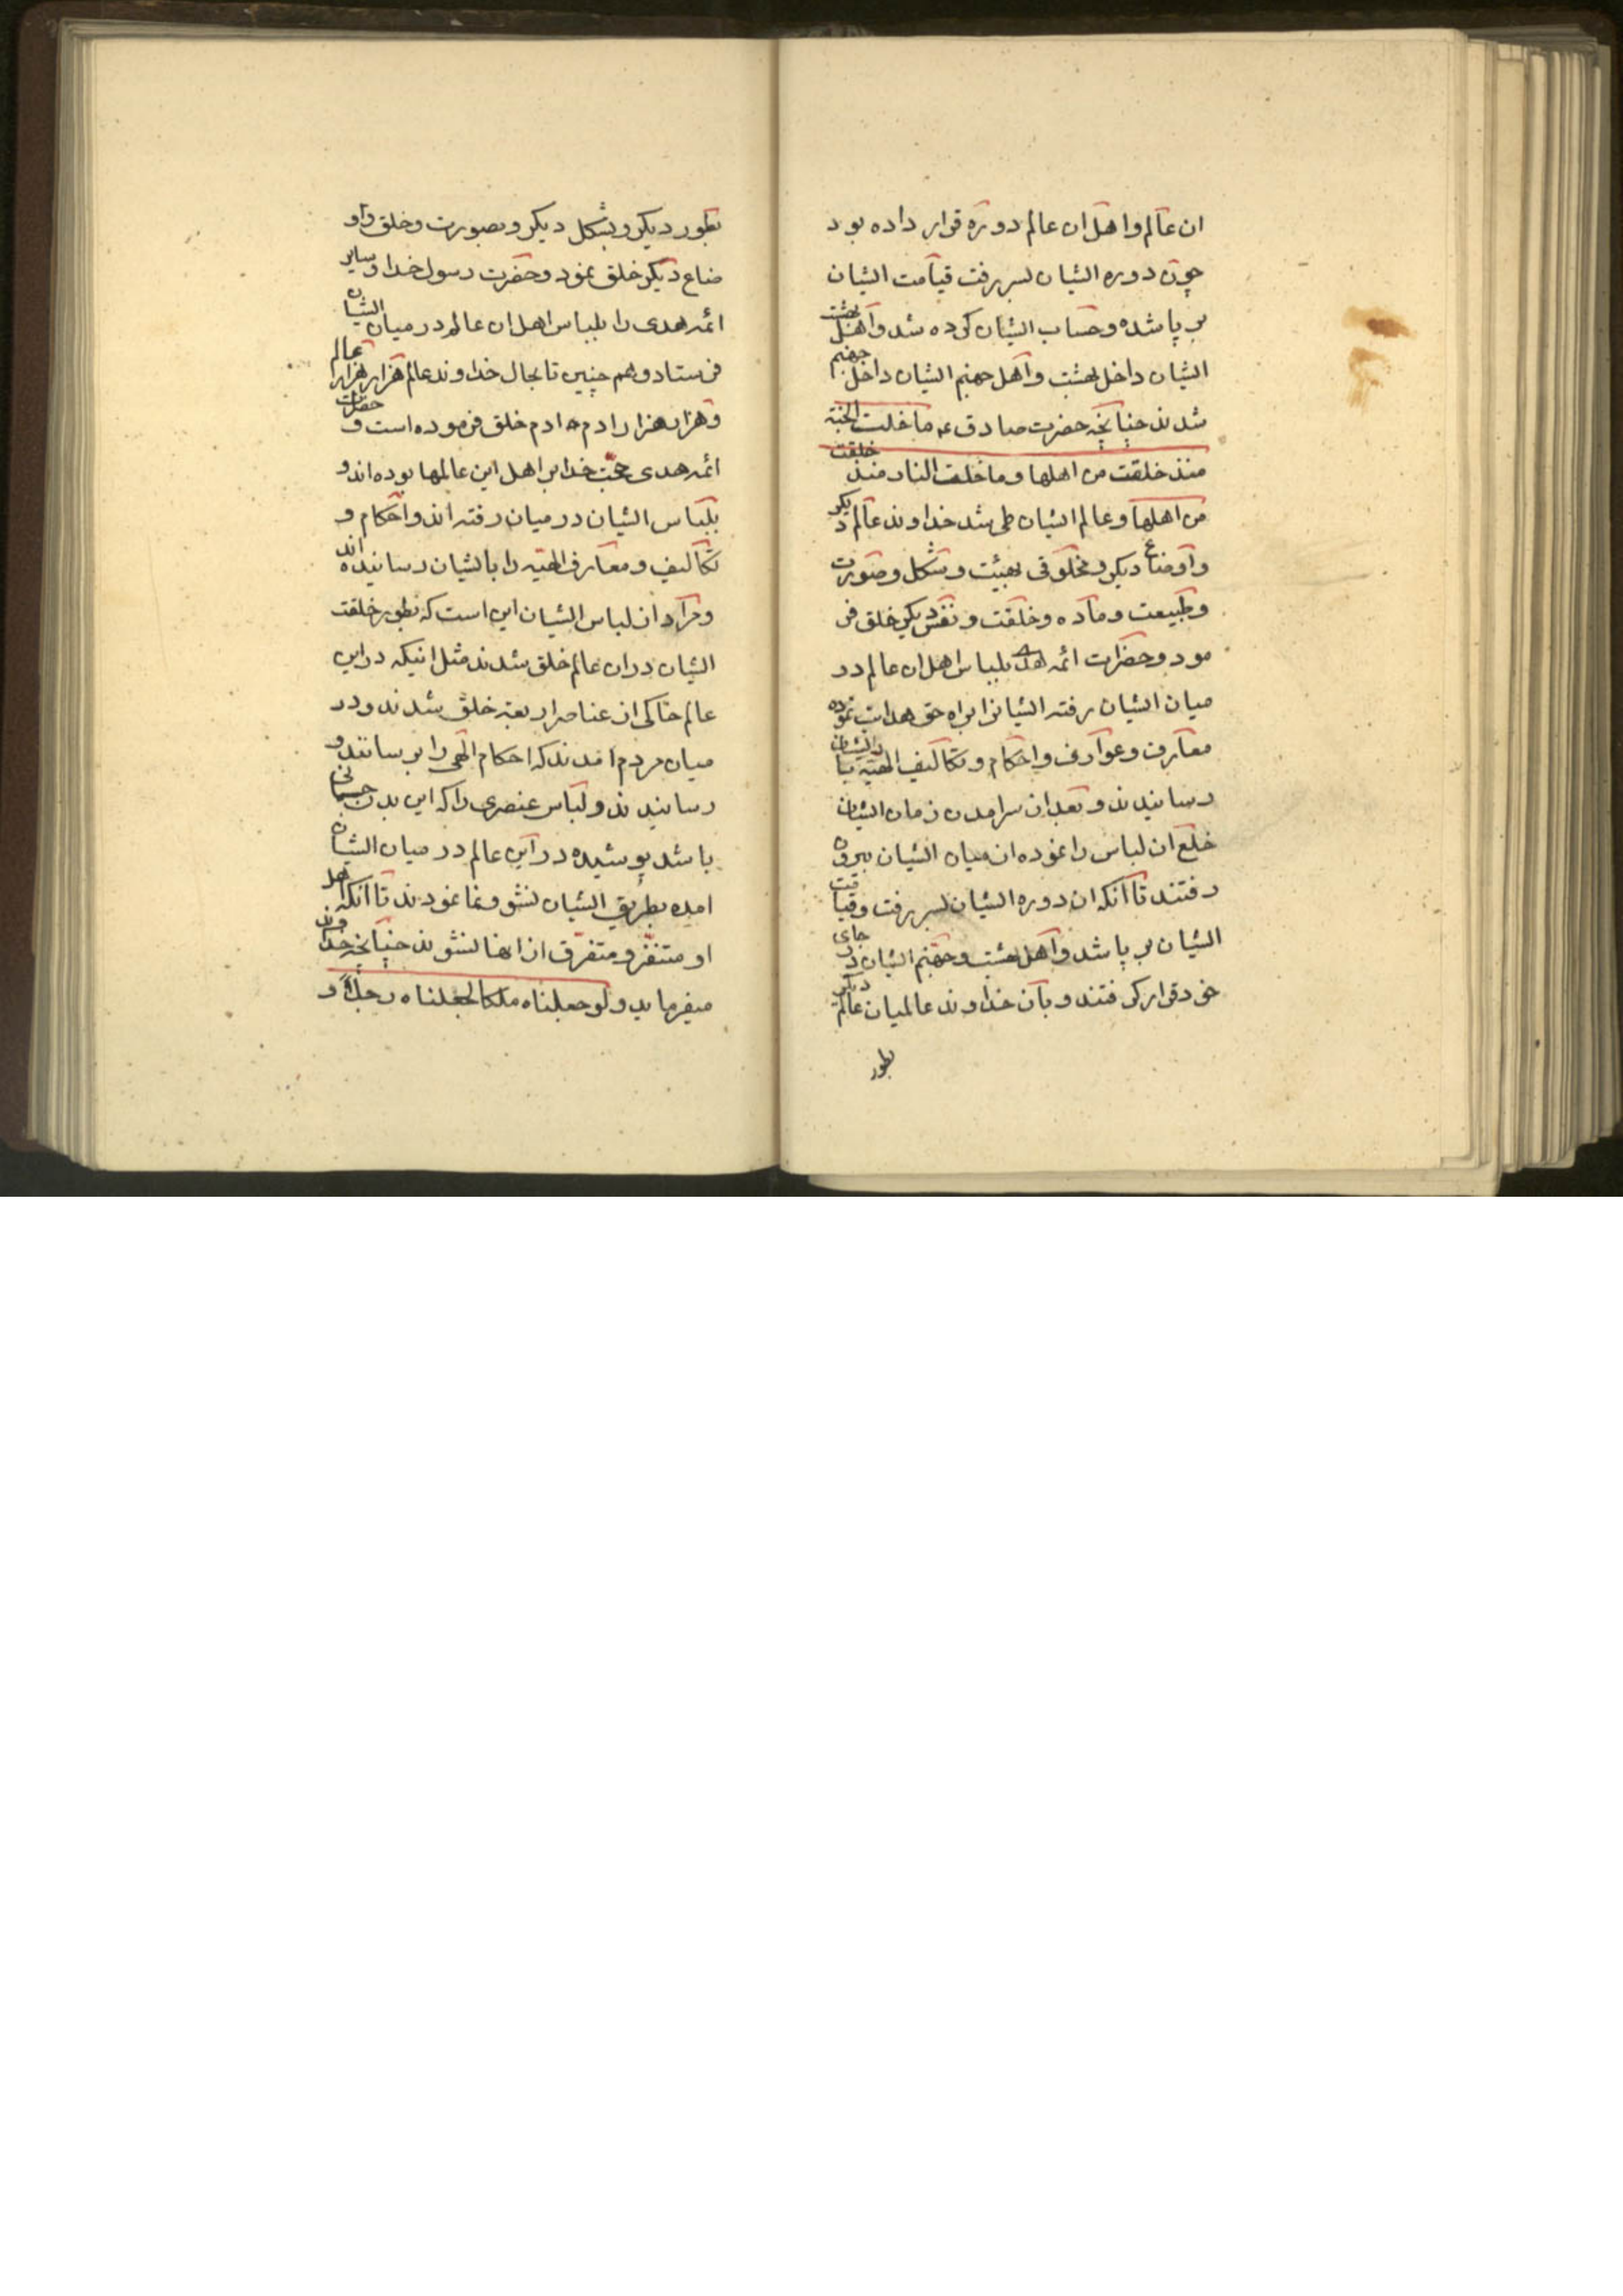 ان عالم و اهل ان عالم دوره قرار داده بود
چون دوره ایشان بسر رفت قیامت ایشان
بر پا شده و حساب ایشان کرده شد و اهل بهشت
ایشان داخل بهشت و اهل جهنم ایشان داخل جهنم
شدند چنانچه حضرت صادق عه ما خلت الجنة
منذ خلقت من اهلها و ما خلت النار منذ خلقت
من اهلها و عالم ایشان طی شد خداوند عالم دیگر
و اوضاع دیگر و مخلوقی بهیئت و شکل و صورت
و طبیعت و ماده و خلقت و نقش دیگر خلق فر
مود و حضرات ائمه هدی بلباس اهل ان عالم در
میان ایشان رفته ایشانرا براه حق هدایت نموده
معارف و عوارف و احکام و تکالیف الهیه بایشان
رسانیدند و بعد از سرامدن زمان ایشان
خلع ان لباس را نموده از میان ایشان بیرون
رفتند تا آنکه ان دوره ایشان بسر رفت و قیامت
ایشان بر پا شد و اهل بهشت و جهنم ایشان در جای
خود قرار گرفتند و بآن خداوند عالمیان عالم دیگر
بطور
بطور دیگر و بشکل دیگر و بصورت و خلق و او
ضاع دیگر خلق نمود و حضرت رسول خدا و سایر
ائمه هدی را بلباس اهل ان عالم در میان ایشان
فرستاد و هم چنین تا بحال خداوند عالم هزار هزار عالم
و هزار هزار ادم خلق فرموده است و حضرات
ائمه هدی حجت خدا بر اهل این عالمها بوده اند و
بلباس ایشان در میان رفته اند و احکام و
تکالیف و معارف الهیه را بایشان رسانیده اند
و مراد از لباس ایشان این است که بطور خلقت
ایشان در ان عالم خلق شدند مثل اینکه در این
عالم خاکی از عناصر اربعه خلق شدند و در
میان مردم امدند که احکام الهی را برسانند و
رسانیدند و لباس عنصری را که این بدن جسمانی
باشد پوشیده در این عالم در میان ایشان
امده بطریق ایشان نشو و نما نمودند تا آنکه اهل
او متنفر و متفرق از انها نشوند چنانچه خداوند
میفرماید و لو جعلناه ملکا لجعلناه رجلاً و